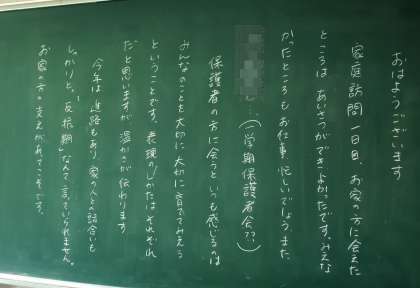 おはようございます
家庭訪問一日目、お家の方に会えた
ところは、あいさつができてよかったです。みえな
かったところもお仕事忙しいでしょう。また
(一学期保護者会??)
保護者の方に会うといつも感じるのは
みんなのことを大切に大切に育ててみえる
ということです。表現しかたはそれぞれ
だと思いますが温かさが伝わります
今年は進路もあり、家の人との話合いも
しっかりと。"反抗期"なんて言っていられません。
お家の方の支えがあってこそです。